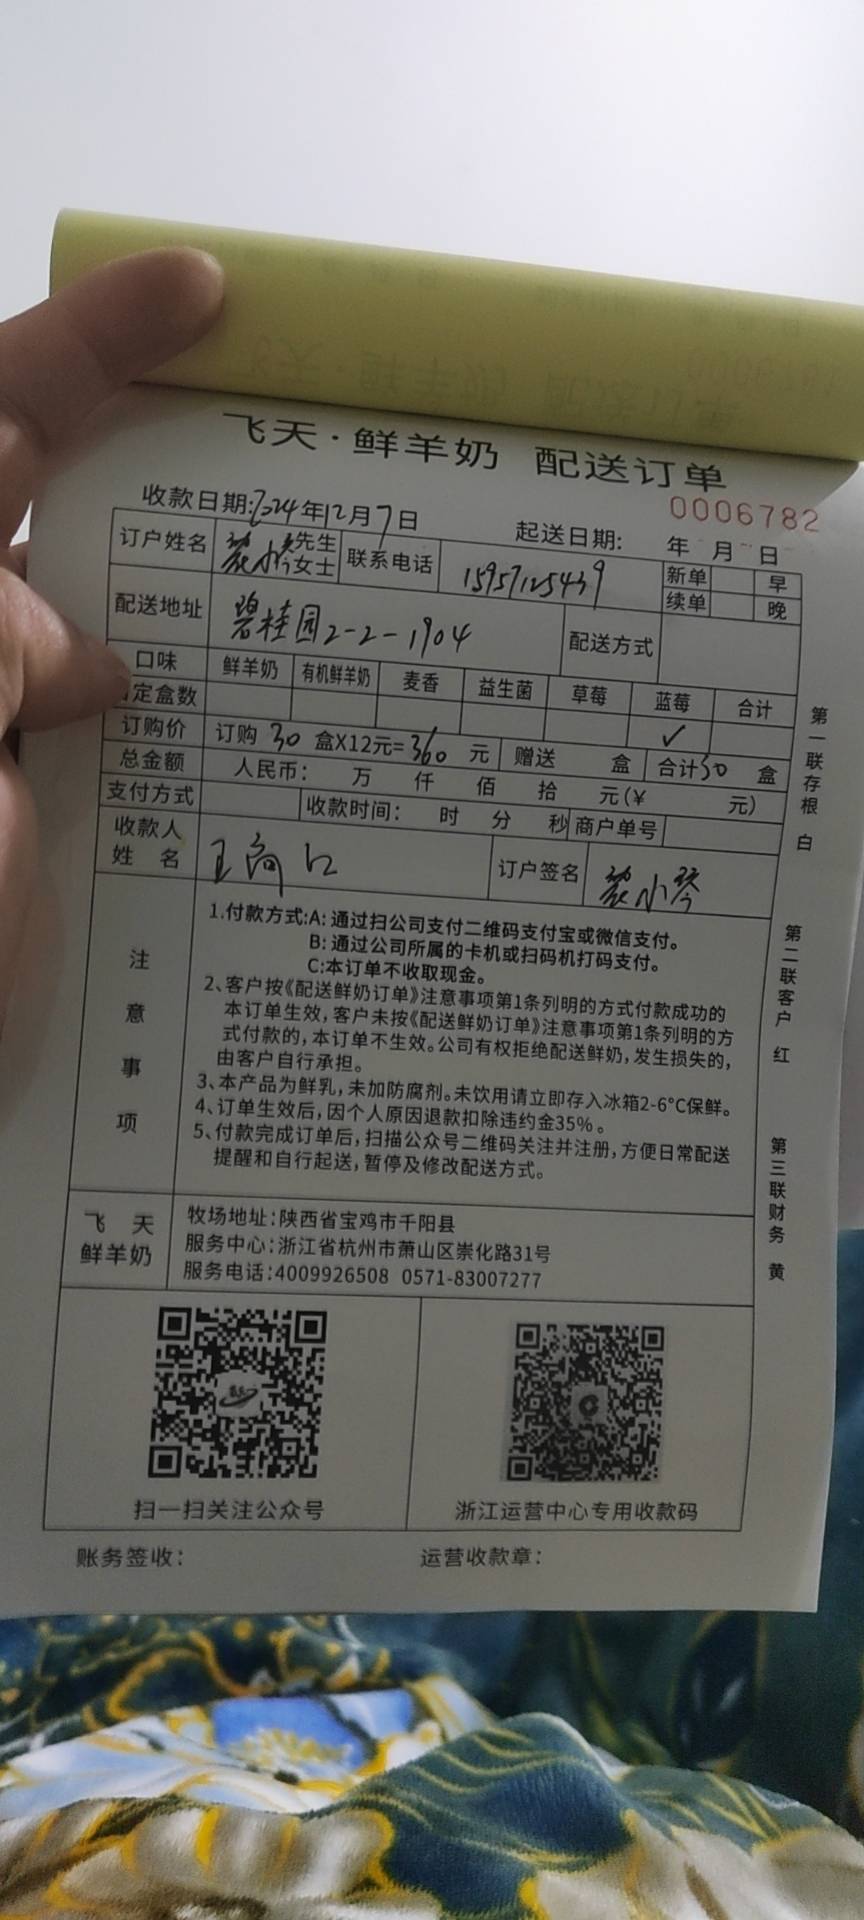 飞天·鲜羊奶 配送订单
0006782
收款日期:2024年12月7日 起送日期: 年 月 日
订户姓名 小琴 先生 女士 联系电话 15957125439 新单 早
续单 晚
配送地址 碧桂园2-2-1904 配送方式
口味 鲜羊奶 有机鲜羊奶 麦香 益生菌 草莓 蓝莓 合计
定盒数 ✓
订购价 订购 30 盒X12元=360 元 赠送 盒 合计30 盒
总金额 人民币: 万 仟 佰 拾 元(¥ 元)
支付方式 收款时间: 时 分 秒 商户单号
收款人姓名 王 订户签名 小琴
注意事项
1.付款方式:A:通过扫公司支付二维码支付宝或微信支付。
B:通过公司所属的卡机或扫码机打码支付。
C:本订单不收取现金。
2、客户按《配送鲜奶订单》注意事项第1条列明的方式付款成功的
本订单生效,客户未按《配送鲜奶订单》注意事项第1条列明的方
式付款的,本订单不生效。公司有权拒绝配送鲜奶,发生损失的,
由客户自行承担。
3、本产品为鲜乳,未加防腐剂。未饮用请立即存入冰箱2-6°C保鲜。
4、订单生效后,因个人原因退款扣除违约金35%。
5、付款完成订单后,扫描公众号二维码关注并注册,方便日常配送
提醒和自行起送,暂停及修改配送方式。
飞天
鲜羊奶
牧场地址:陕西省宝鸡市千阳县
服务中心:浙江省杭州市萧山区崇化路31号
服务电话:4009926508 0571-83007277
扫一扫关注公众号 浙江运营中心专用收款码
账务签收: 运营收款章:
第一联存根 白
第二联客户 红
第三联财务 黄